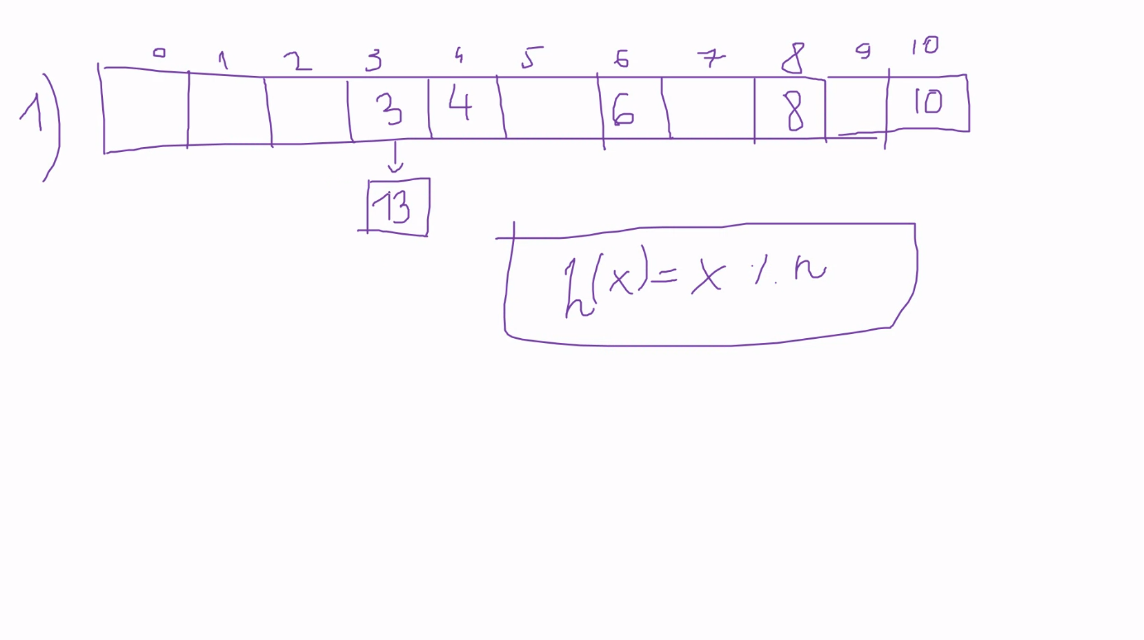 0 1 2 3 4 5 6 7 8 9 10
1) 3 4 6 8 10
13
h(x) = x % n